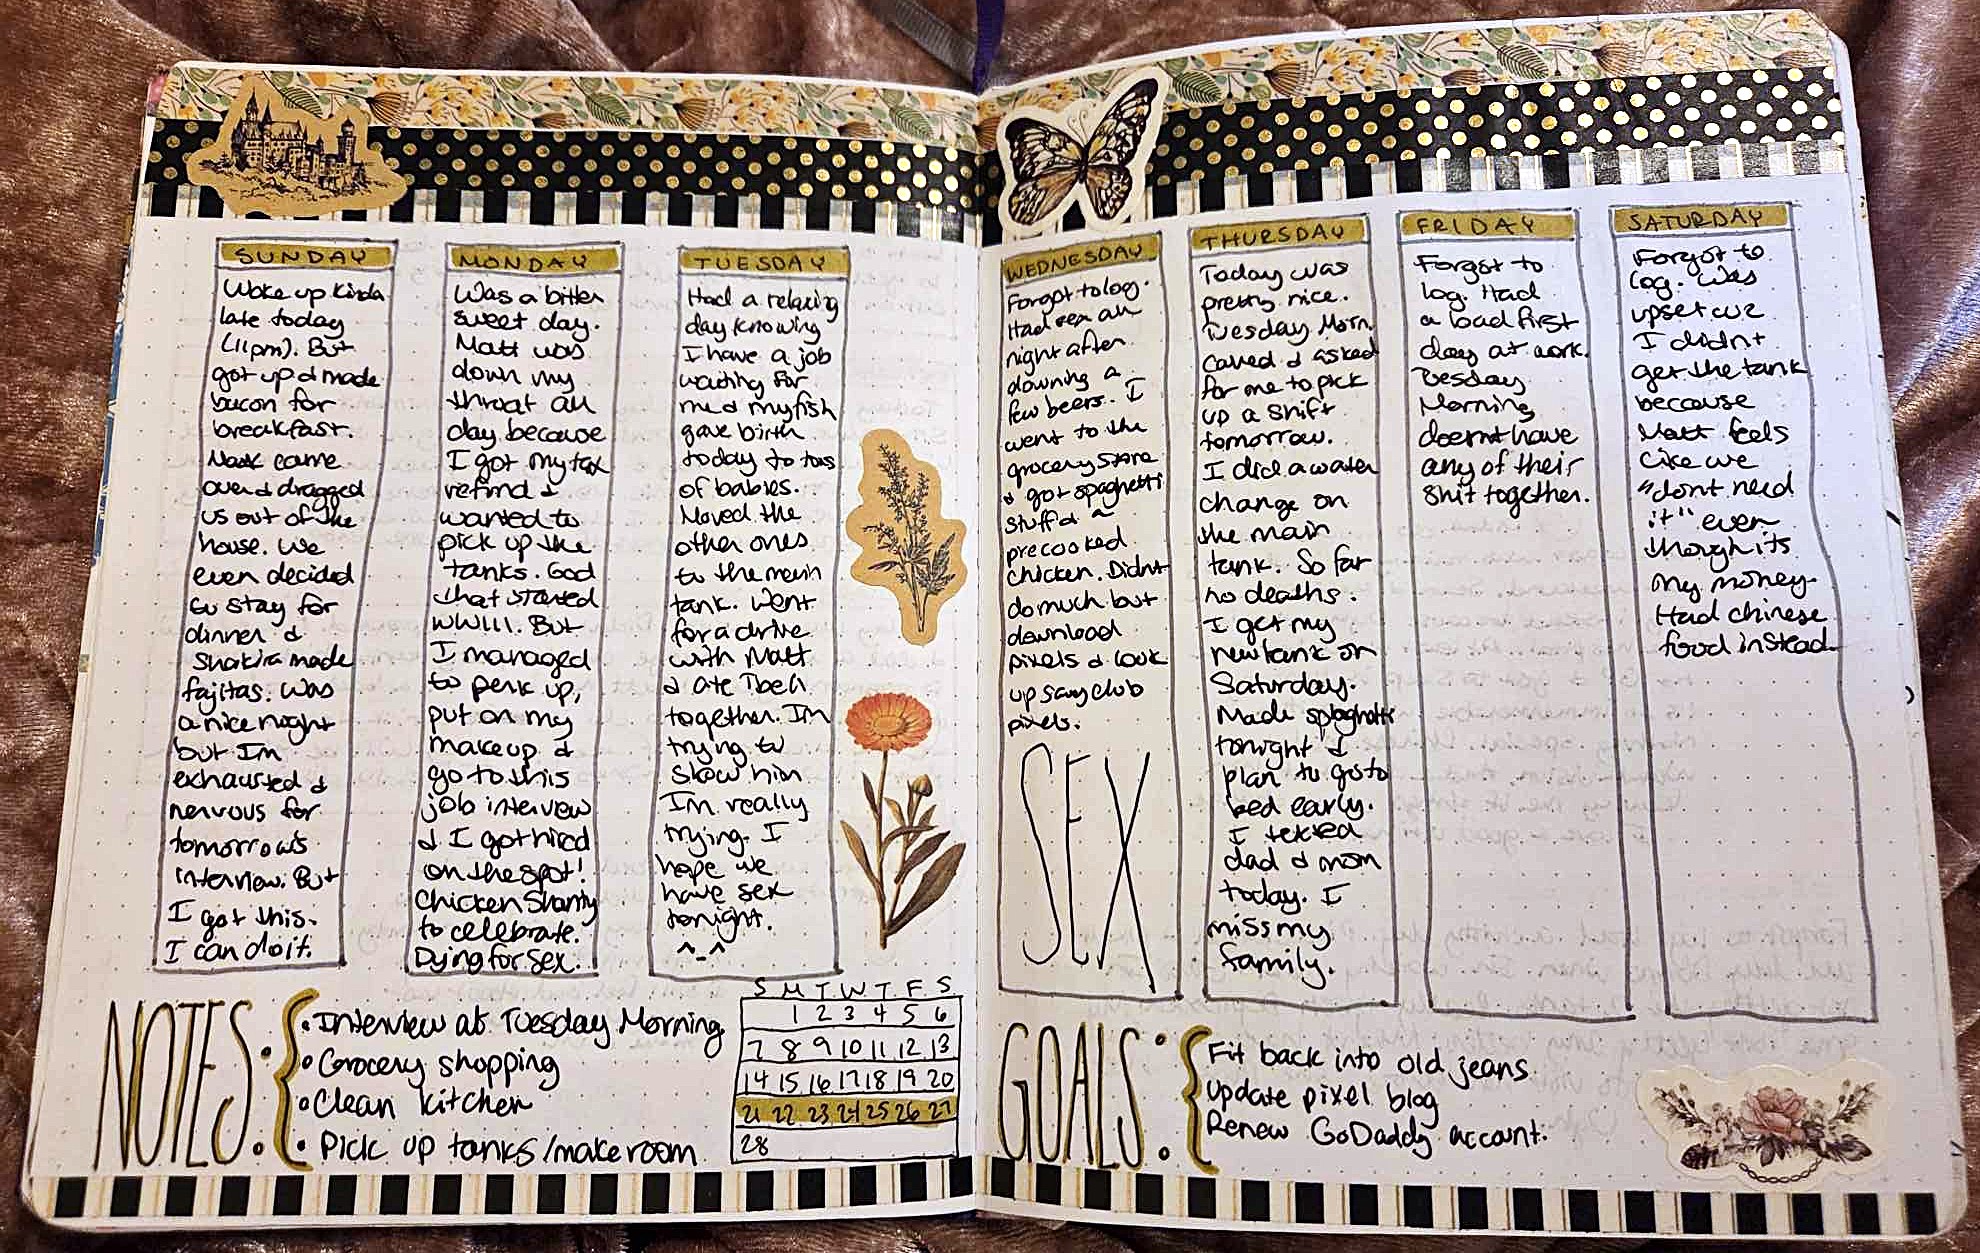 SUNDAY
Woke up kinda
late today
(11pm). But
got up & made
bacon for
breakfast.
came
over & dragged
us out of the
house. We
even decided
to stay for
dinner &
Shakira made
fajitas. Was
a nice night
but Im
exhausted &
nervous for
tomorrows
interview. But
I got this.
I can do it.
MONDAY
Was a bitter
sweet day.
Matt was
down my
throat all
day because
I got my tax
refund &
wanted to
pick up the
tanks. God
that started
WWIII. But
I managed
to perk up,
put on my
makeup &
go to this
job interview
& I got hired
on the spot!
Chicken Shanty
to celebrate.
Dying for sex.
TUESDAY
Had a relaxing
day knowing
I have a job
waiting for
me & my fish
gave birth
today to tons
of babies.
Moved the
other ones
to the main
tank. Went
for a drive
with Matt
& ate Tbell
together. Im
trying to
show him
Im really
trying. I
hope we
have sex
tonight.
^_^
WEDNESDAY
Forgot to log.
Had sex all
night after
downing a
few beers. I
went to the
grocery store
& got spaghetti
stuff & ~
precooked
chicken. Didnt
do much but
download
pixels & look
up savy club
pixels.
SEX
THURSDAY
Today was
pretty nice.
Tuesday Morn.
called & asked
for me to pick
up a shift
tomorrow.
I did a water
change on
the main
tank. So far
no deaths.
I get my
new tank on
Saturday.
Made spaghetti
tonight &
plan to go to
bed early.
I texted
dad & mom
today. I
miss my
family.
FRIDAY
Forgot to
log. Had
a bad first
day at work.
Tuesday
Morning
doesnt have
any of their
shit together.
SATURDAY
Forgot to
log. Was
upset cuz
I didnt
get the tank
because
Matt feels
like we
"dont need
it" even
though its
my money.
Had chinese
food instead.
NOTES:
• Interview at Tuesday Morning
• Grocery shopping
• Clean kitchen
• Pick up tanks/make room
S M T W T F S
1 2 3 4 5 6
7 8 9 10 11 12 13
14 15 16 17 18 19 20
21 22 23 24 25 26 27
28
GOALS:
Fit back into old jeans
Update pixel blog
Renew GoDaddy account.